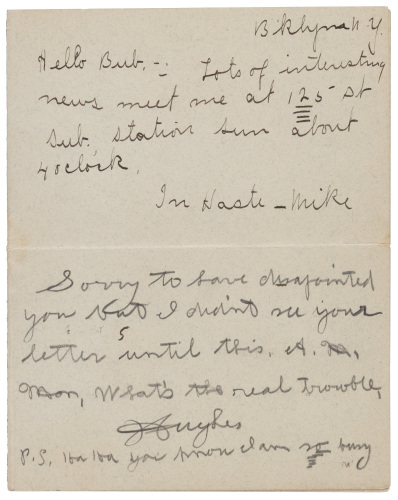 Bklyn N.Y.
Hello Bub. -: Lots of interesting
news meet me at 125 St
Sub. Station Sun about
4 oclock.
In Haste - Mike
Sorry to have dissapointed
you but I didn't see your
letter until this. A. M.
Mon, What's the real trouble,
Hughes
P.S. Ha Ha you know I am so busy